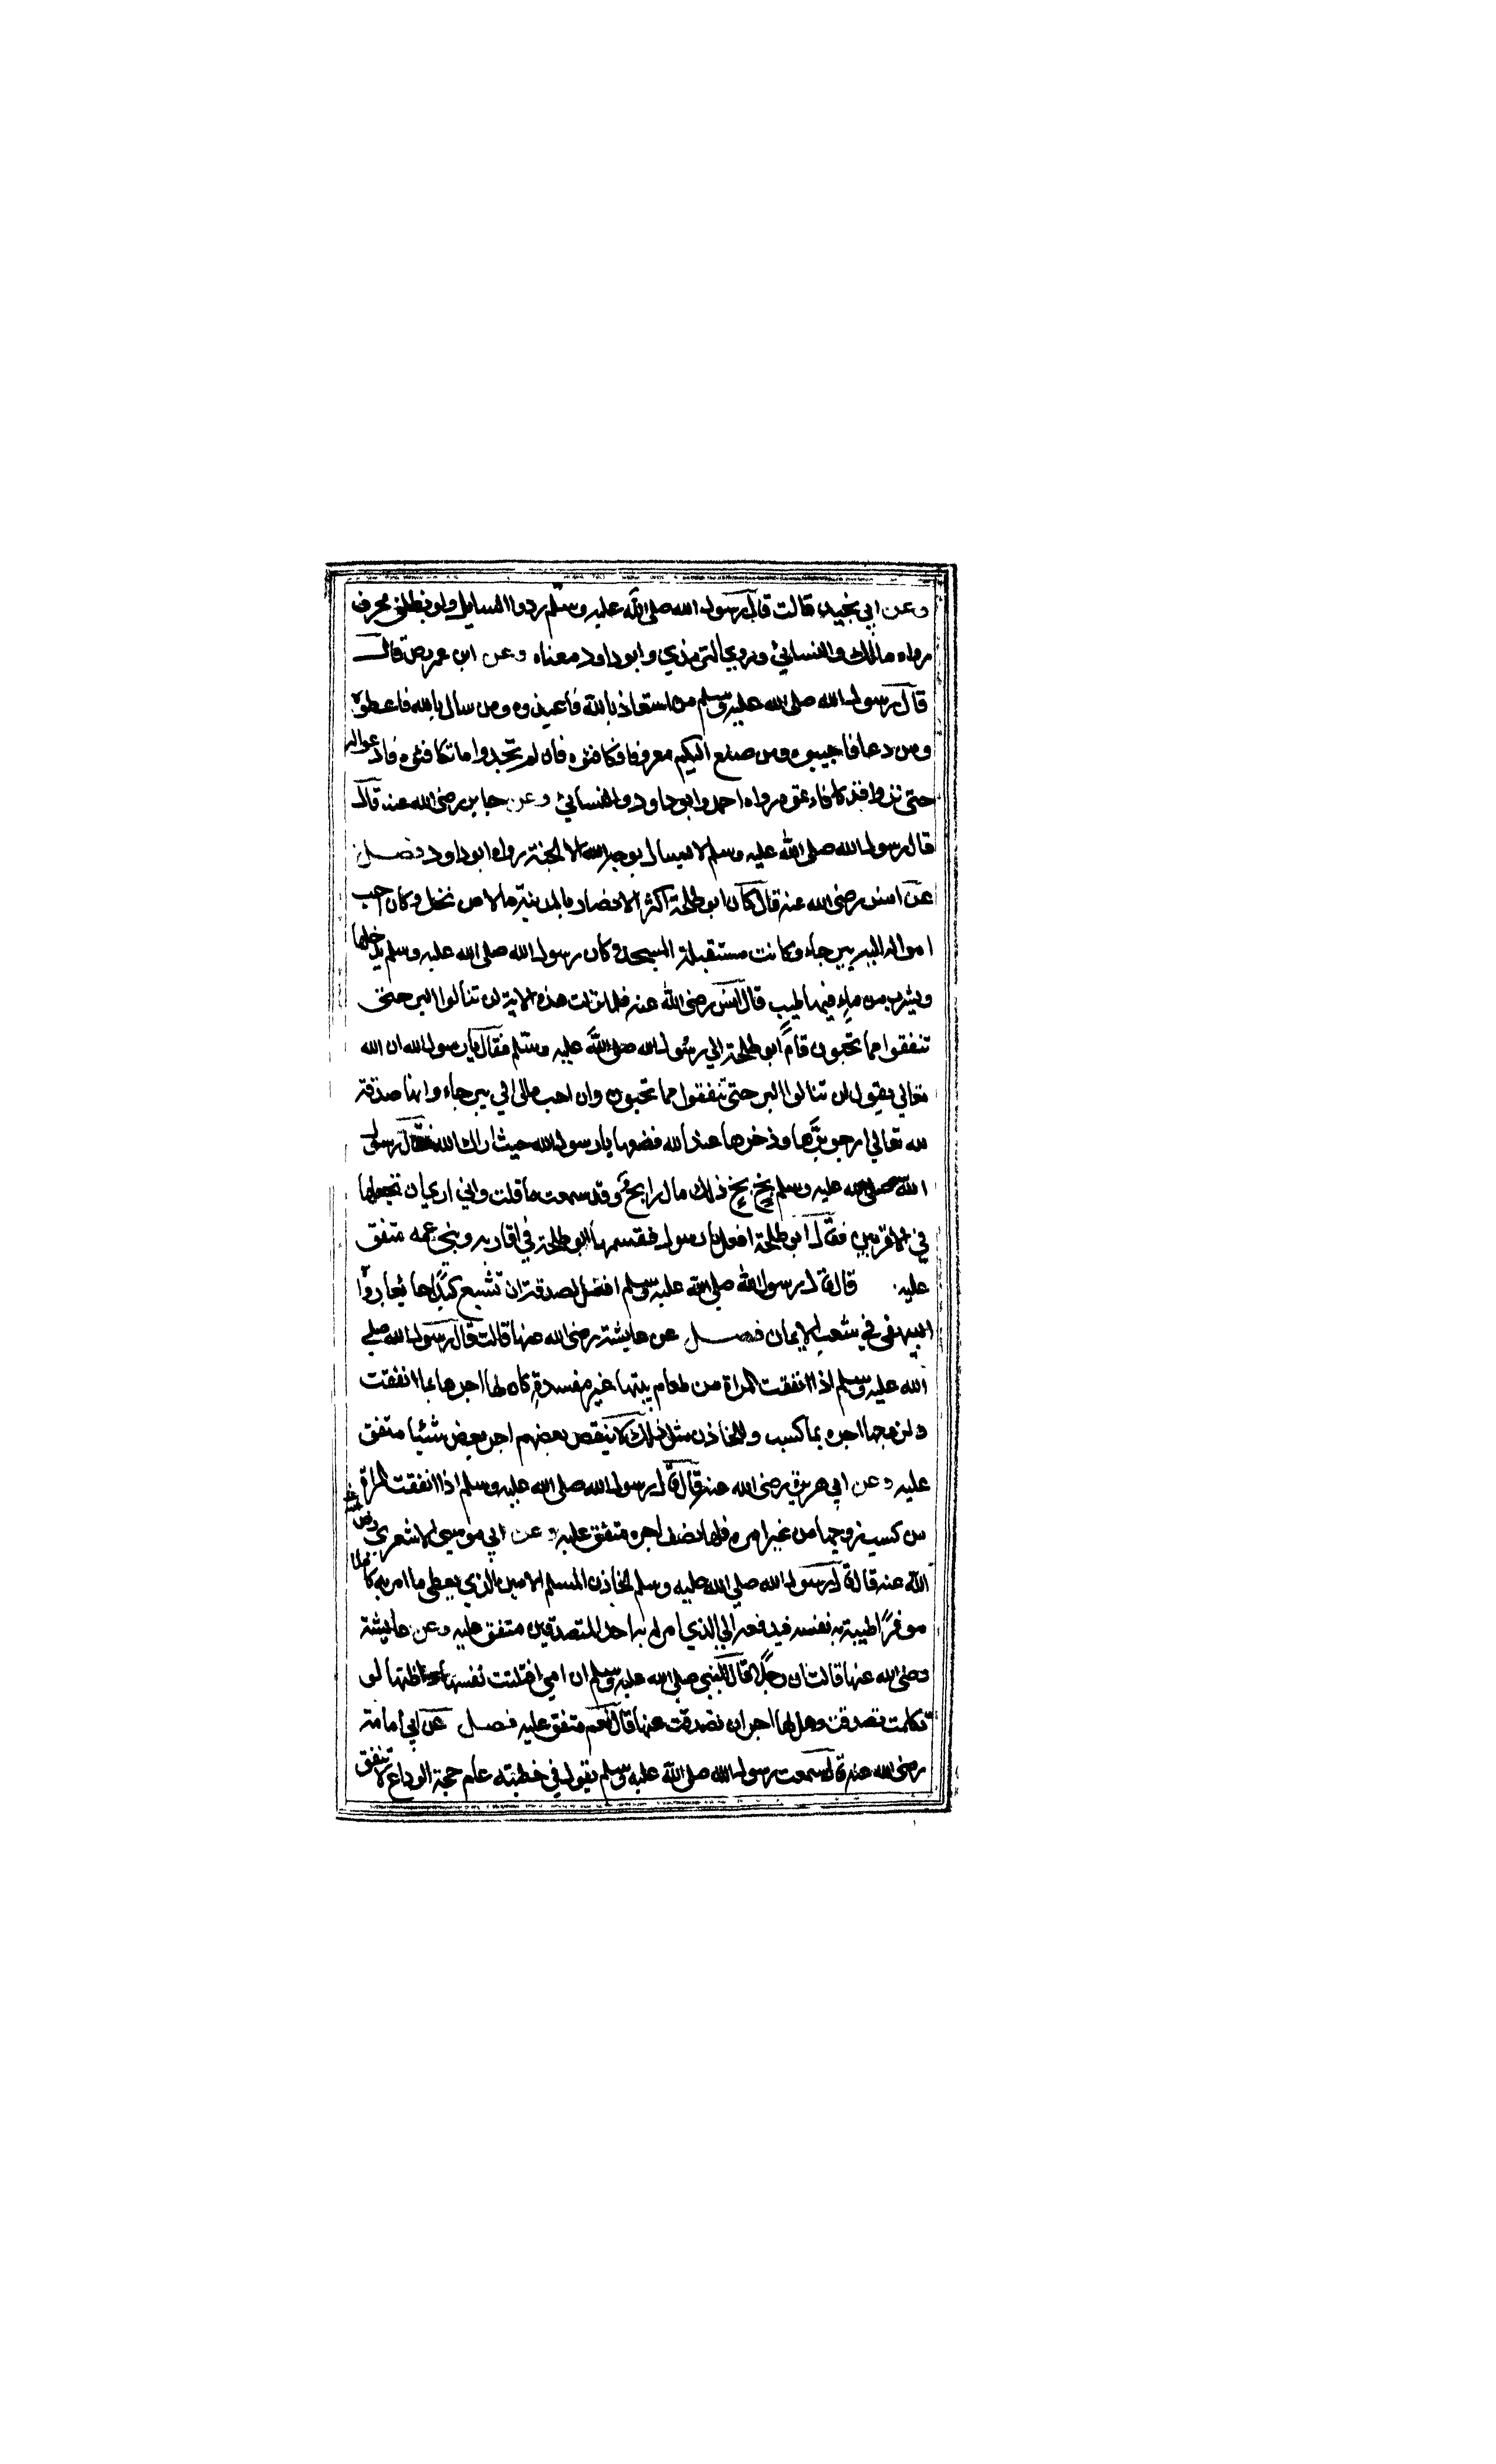 وعن ابي بجيد قالت قال رسول الله صلى الله عليه وسلم ردوا السايل ولو بظلف محرف
رواه مالك والنسائي وروي الترمذي وابو داود معناه وعن ابن عمر رض قال
قال رسول الله صلى الله عليه وسلم من استعاذ بالله فاعيذوه ومن سال بالله فاعطوه
ومن دعا فاجيبوه ومن صنع اليكم معروفا فكافئوه فان لم تجدوا ما تكافئوه فادعوا له
حتى تروا قد كافاءتموه رواه احمد وابو داود والنسائي وعن جابر رضى الله عنه قال
قال رسول الله صلى الله عليه وسلم لا يسال بوجه الله الا الجنة رواه ابو داود فصل
عن انس رضى الله عنه قال كان ابو طلحة اكثر الانصار بالمدينة مالا من نخل وكان احب
امواله اليه بيرحاء وكانت مستقبلة المسجد وكان رسول الله صلى الله عليه وسلم يدخلها
ويشرب من ماء فيها طيب قال انس رضى الله عنه فلما نزلت هذه الاية لن تنالوا البر حتى
تنفقوا مما تحبون قام ابو طلحة الي رسول الله صلى الله عليه وسلم فقال يا رسول الله ان الله
تعالي يقول لن تنالوا البر حتى تنفقوا مما تحبون وان احب مالى الي بيرحاء وانها صدقة
لله تعالي ارجو برها وذخرها عند الله فضعها يا رسول الله حيث اراك الله فقال رسول
الله صلى الله عليه وسلم بخ بخ ذلك مال رابح وقد سمعت ما قلت واني اري ان تجعلها
في الاقربين فقال ابو طلحة افعل يا رسول فقسمها ابو طلحة في اقاربه وبني عمه متفق
عليه قال قال رسول الله صلى الله عليه وسلم افضل الصدقة ان تشبع كبدا جايعا رواه
البيهقي في شعب الايمان فصل عن عايشة رضى الله عنها قالت قال رسول الله صلي
الله عليه وسلم اذا انفقت المراة من طعام بيتها غير مفسدة كان لها اجرها بما انفقت
ولزوجها اجره بما كسب وللخازن مثل ذلك لا ينقص بعضهم اجر بعض شئيا متفق
عليه وعن ابي هريرة رضى الله عنه قال قال رسول الله صلى الله عليه وسلم اذا انفقت المراة
من كسب زوجها من غير امره فلها نصف اجره متفق عليه وعن ابي موسى الاشعري رض
الله عنه قال قال رسول الله صلي الله عليه وسلم الخازن المسلم الامين الذي يعطي ما امر به كاملا
موفرا طيبة به نفسه فيدفعه الي الذي امر له به احد المتصدقين متفق عليه وعن عايشة
رضى الله عنها قالت ان رجلا قال للنبي صلي الله عليه وسلم ان امي افتلتت نفسها واظنها لو
تكلمت تصدقت وهل لها اجر ان تصدقت عنها قال نعم متفق عليه فصل عن ابي امامة
رضى الله عنه قال سمعت رسول الله صلى الله عليه وسلم يقول في خطبته عام حجة الوداع لا تنفق